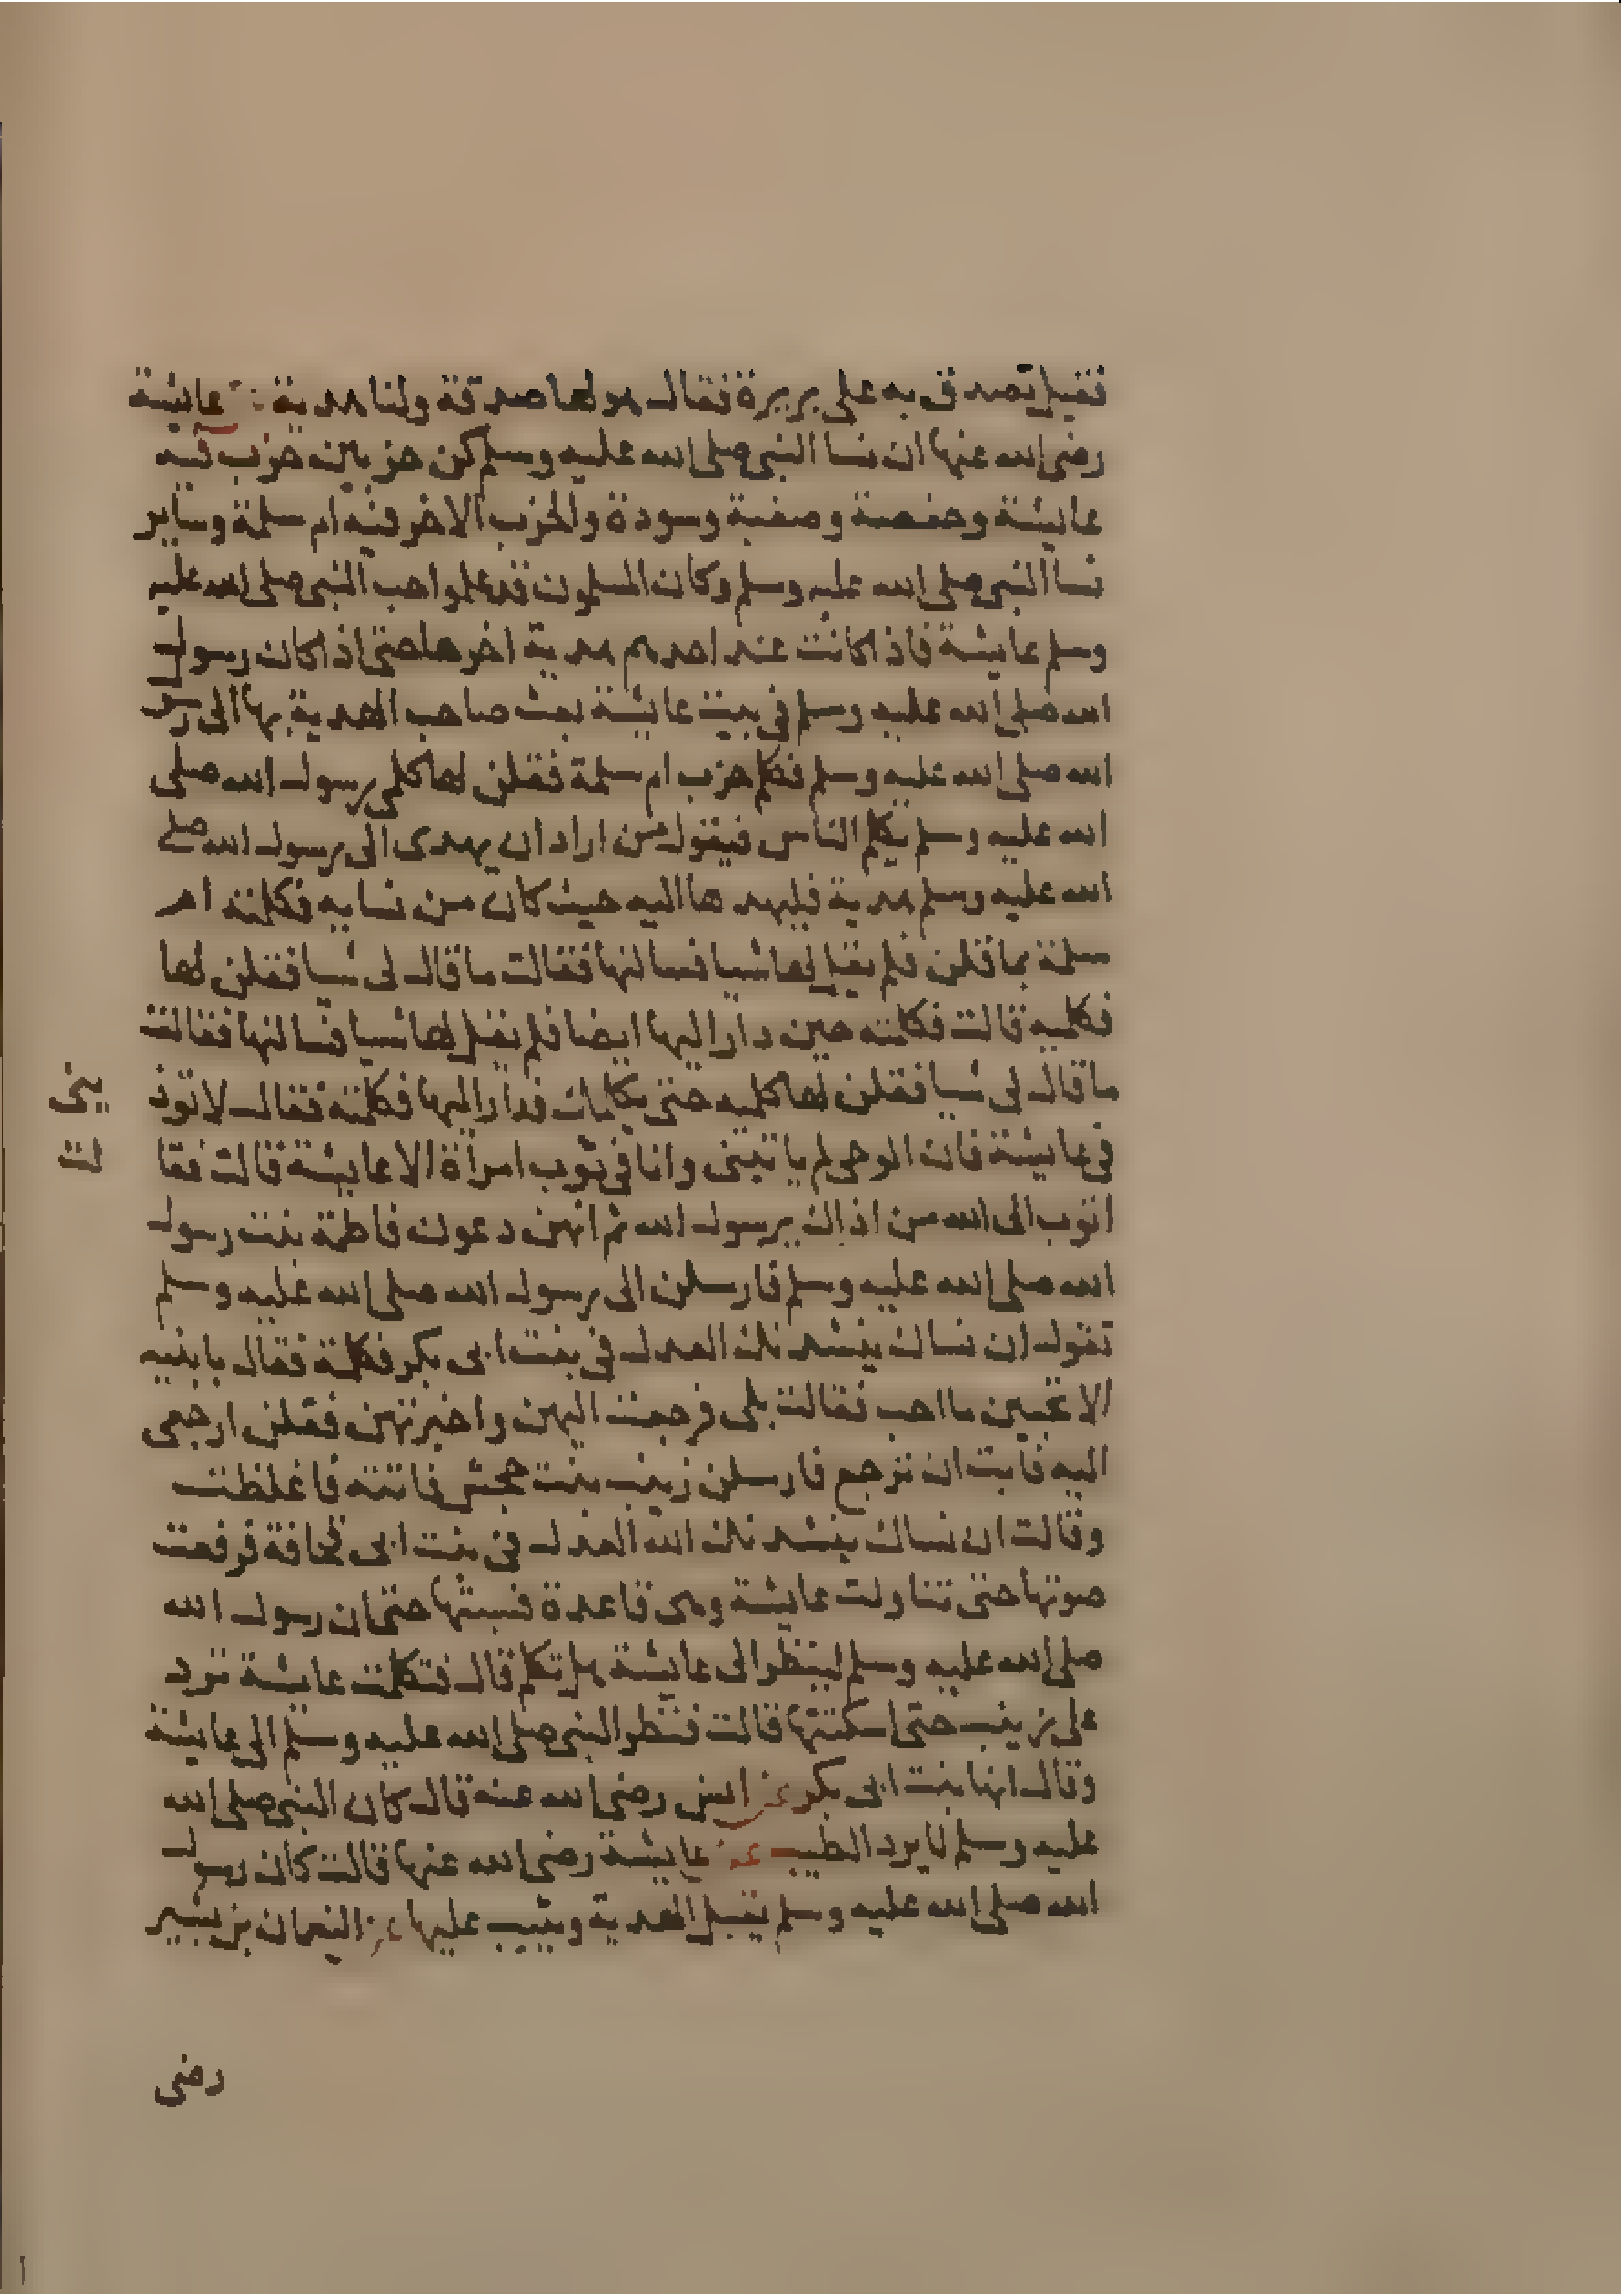 فقيل تصدق به على بريرة فقال هو لها صدقة ولنا هدية عن عايشة
رضي الله عنها ان نسا النبي صلى الله عليه وسلم كن حزبين حزب فيه
عايشة وحفصة وصفية وسودة والحزب الاخر فيه ام سلمة وساير
نسا النبي صلى الله عليه وسلم وكان المسلمون قد علموا حب النبي صلى الله عليه
وسلم عايشة فاذا كانت عند احدهم هدية اخرها حتى اذا كان رسول
الله صلى الله عليه وسلم في بيت عايشة بعث صاحب الهدية بها الى رسول
الله صلى الله عليه وسلم فكلم حزب ام سلمة فقلن لها كلمي رسول الله صلى
الله عليه وسلم يكلم الناس فيقول من اراد ان يهدى الى رسول الله صلى
الله عليه وسلم هدية فليهدها اليه حيث كان من نسايه فكلمته ام
سلمة بما قلن فلم يقل لها شيا فسالنها فقالت ما قال لي شيا فقلن لها
فكلميه قالت فكلمته حين دار اليها ايضا فلم يقل لها شيا فسالنها فقالت
ما قال لي شيا فقلن لها كلميه حتى يكلمك فدار اليها فكلمته فقال لا توذ
يني
في عايشة فان الوحي لم ياتيني وانا في ثوب امرأة الا عايشة قالت فقا
لت
اتوب الى الله من اذاك يرسول الله ثم انهن دعون فاطمة بنت رسول
الله صلى الله عليه وسلم فارسلن الى رسول الله صلى الله عليه وسلم
تقول ان نساك ينشدنك العدل في بنت ابي بكر فكلمة فقال يا بنيه
الا تحبين ما احب فقالت بلى فرجعت اليهن واخبرتهن فقلن ارجعي
اليه فابت ان ترجع فارسلن زينب بنت جحش فاتته فاغلظت
وقالت ان نساك ينشدنك الله العدل في بنت ابي قحافة فرفعت
صوتها حتى تناولت عايشة وهي قاعدة فسبتها حتى ان رسول الله
صلى الله عليه وسلم لينظر الى عايشة هل تكلم قال فتكلمت عايشة ترد
على زينب حتى اسكتتها قالت فنظر النبي صلى الله عليه وسلم الى عايشة
وقال انها بنت ابي بكر عن انس رضي الله عنه قال كان النبي صلى الله
عليه وسلم لا يرد الطيب عن عايشة رضي الله عنها قالت كان رسول
الله صلى الله عليه وسلم يقبل الهدية ويثيب عليها عن النعمان بن بشير
رضي